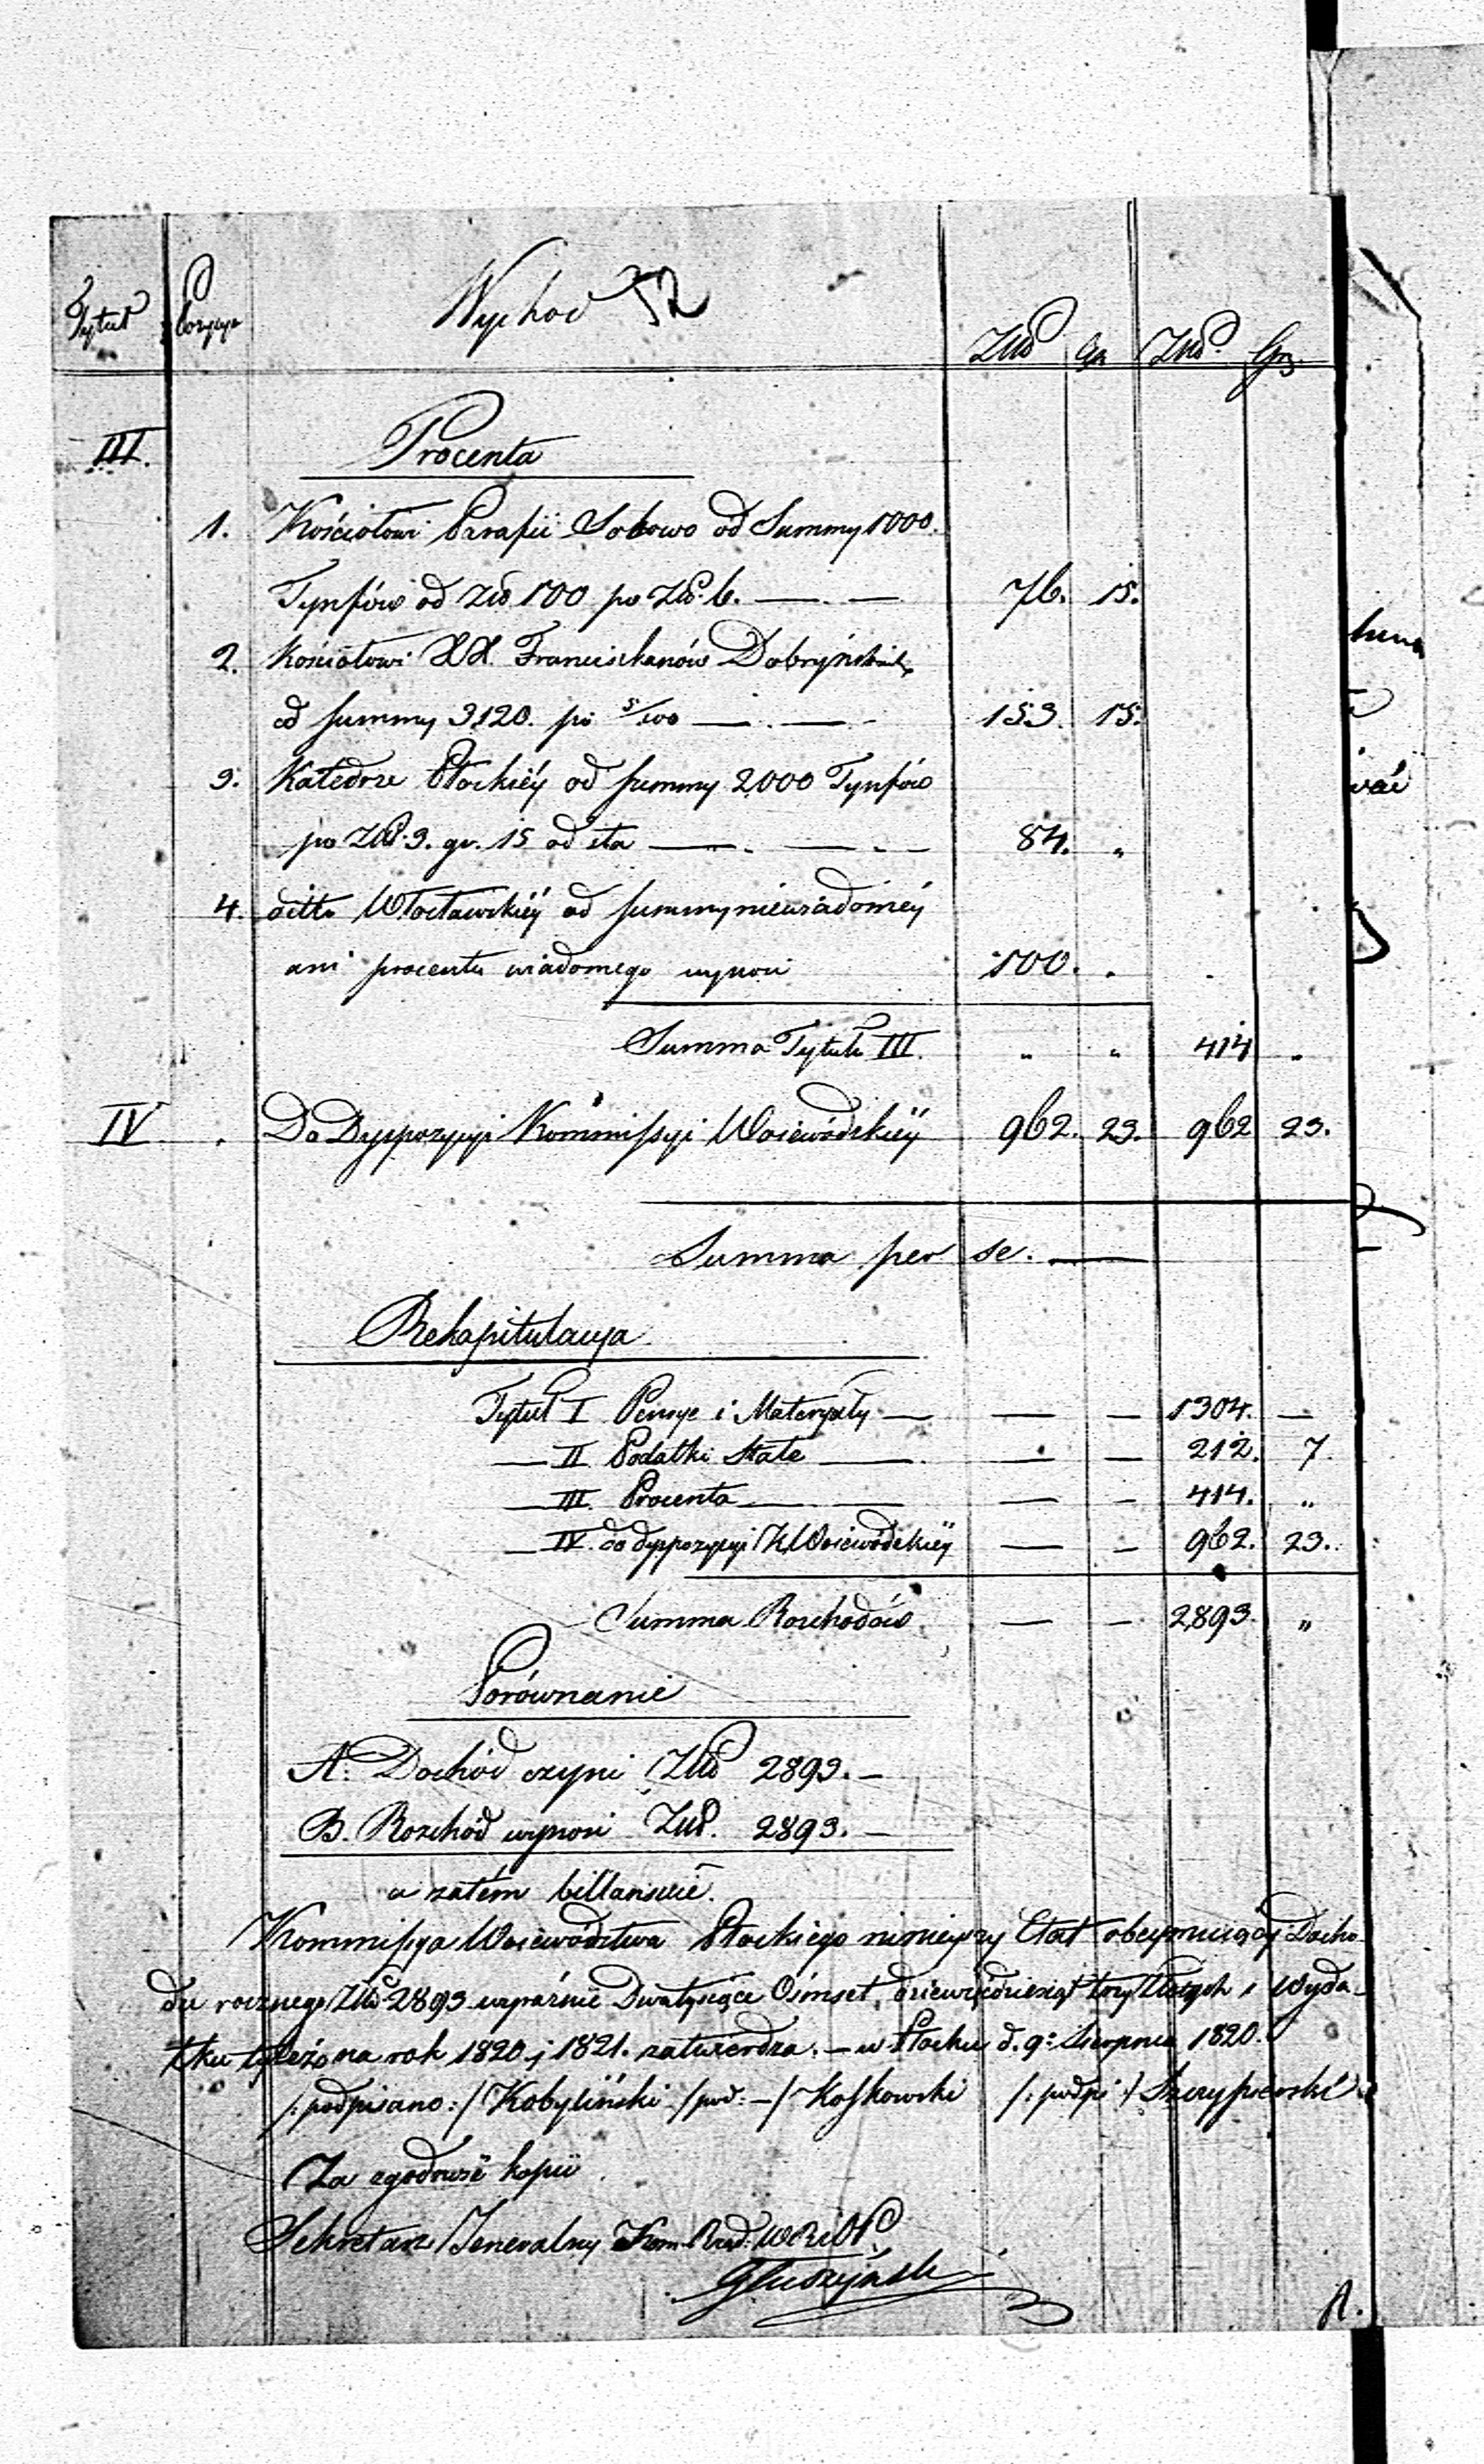 Tytuł Pozycya Wychod 52 Złłp Gr Złłp Grz
III. Procenta
1. Kościołowi Parafii Sobowo od Summy 1000.
Tynfów od Złł 100 po Złłp. 6. — . — 76. 15.
2. Kościołowi XX. Franciszkanów Dobryńskich
od summy 3120. po 5/100 — . — . - 153. 15.
3. Katedrze Płockiéy od summy 2000 Tynfów
po Złłp. 3. gr. 15 od sta — . — . — 84. "
4. ditto Włocławskiéy od summy niewiadoméy
ani procentu wiadomego wynosi 100. . .
Summa Tytułu III. " " 414 "
IV . Do Dyspozycyi Kommissyi Woiewódzkiéy 962. 23. 962 23.
Summa per se. —
Rekapitulacya
Tytuł I Pensye i Materyały — — — 1304. —
— II Podatki Stałe — — — 212. 7.
— III. Procenta — — — — 414. "
— IV. do dyspozycyi K. Woiewódzkiéy — — 962. 23.
Summa Rozchodów. — — 2893. "
Porównanie
A. Dochód czyni Złłp 2893. —
B. Rozchód wynosi Złłp. 2893. —
a zatém billansuie.
Kommissya Woiewództwa Płockiego ninieyszy Etat obeymuiący Docho-
du rocznego Złłp 2893 wyraźnie Dwatysiące Ośmset dziewięćdziesiąt trzy Złotych i Wyda-
tku tyleż na rok 1820 j 1821. zatwierdza. — w Płocku d. 9: Sierpnia 1820.
/: podpisano :/ Kobyliński /pod: —/ Koskowski /: podpi :/
Za zgodność kopii
Sekretarz Jeneralny Kom. Rząd.
hura
wać